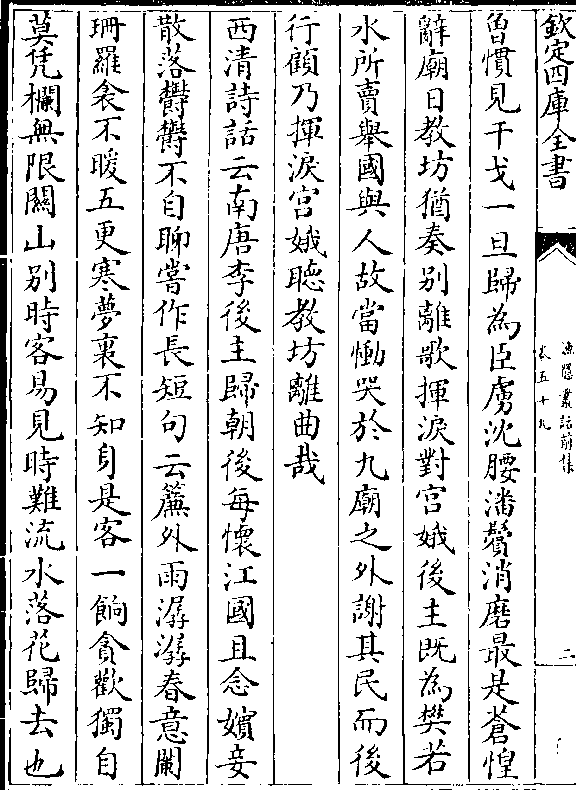 欽定四庫全書
漁隱叢話前集
卷五十九
二
曾慣見干戈一旦歸為臣虜沈腰潘鬢消磨最是蒼惶
辭廟日教坊猶奏别離歌揮淚對宮娥後主既為樊若
水所賣舉國與人故當慟哭於九廟之外謝其民而後
行顧乃揮淚宮娥聽教坊離曲哉
西清詩話云南唐李後主歸朝後每懷江國且念嬪妾
散落鬱鬱不自聊嘗作長短句云簾外雨潺潺春意闌
珊羅衾不暖五更寒夢裏不知身是客一餉貪歡獨自
莫凭欄無限闗山别時容易見時難流水落花歸去也